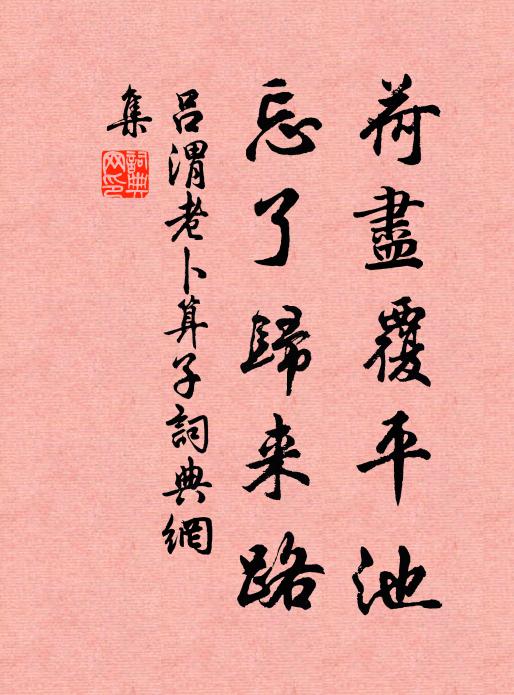 荷盡覆平池
忘了歸来路
吕渭老卜算子詞典網
集
詞典网印